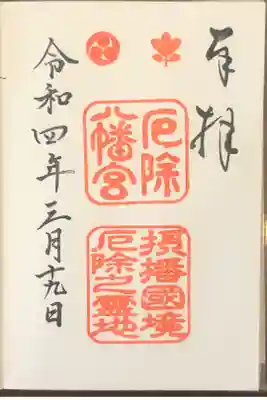 奉拝
厄除
八幡宮
摂播國境
厄除之霊地
令和四年三月十九日